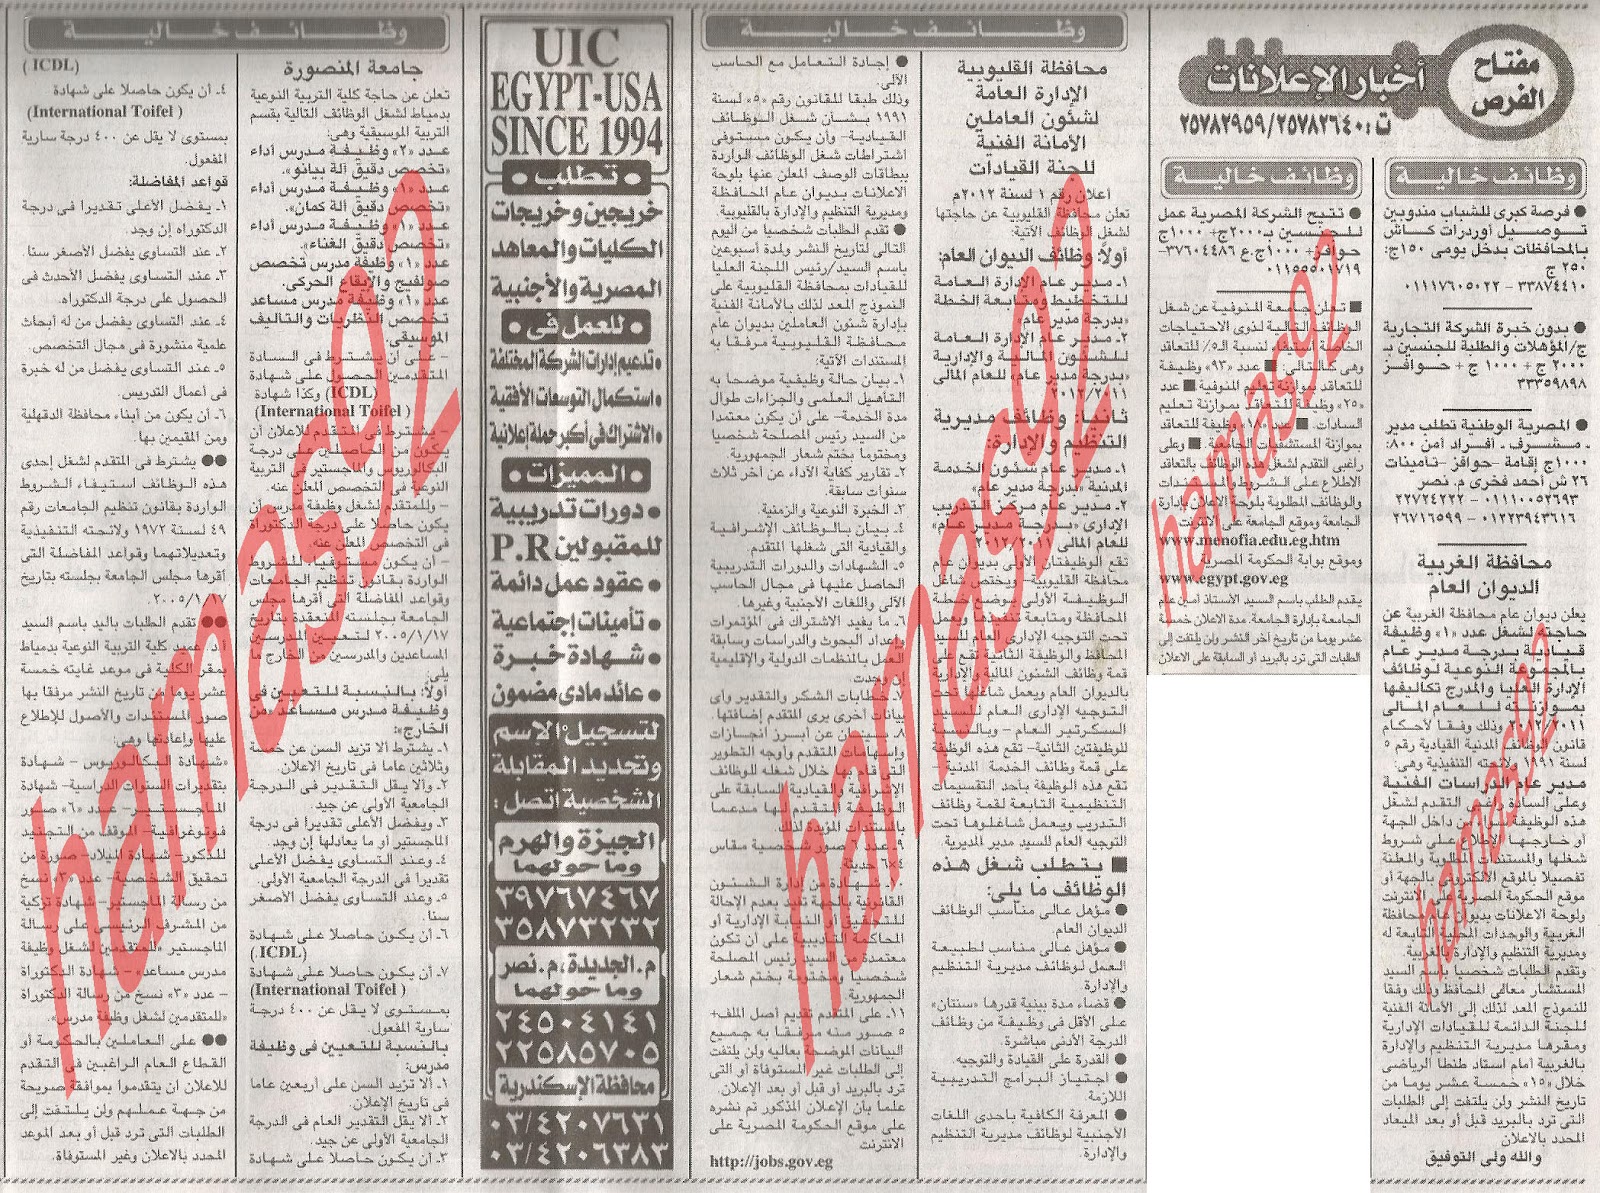 مفتاح
الفرص
أخبار الإعلانات
ت: ٢٥٧٨٢٦٤٠/٢٥٧٨٢٩٥٩
وظائف خالية
● فرصة كبرى للشباب مندوبين
توصيل أوردرات كاش
بالمحافظات بدخل يومى ١٥٠ج:
٢٥٠ ج
٣٣٨٧٤٤١٠ - ٠١١١٧٦٠٥٠٢٢
● بدون خبرة الشركة التجارية
ج/المؤهلات والطلبة للجنسين بـ
٢٠٠٠ ج + ١٠٠٠ ج + حوافز
٣٣٣٥٩٨٩٨
● المصرية الوطنية تطلب مدير
- مشرف - أفراد أمن ٨٠٠:
١٠٠٠ج إقامة -حوافز -تأمينات
٢٦ ش أحمد فخرى م. نصر
٠١١١٠٠٥٢٦٩٣ - ٢٢٧٢٤٢٢٢
٠١٢٢٣٩٤٣٦١٦ - ٢٦٧١٦٥٩٩
محافظة الغربية
الديوان العام
يعلن ديوان عام محافظة الغربية عن
حاجته لشغل عدد «١» وظيفة
قيادية بدرجة مدير عام
بالمجموعة النوعية لوظائف
الإدارة العليا والمدرج تكاليفها
بموازنته للعام المالى
٢٠١٢/٢٠١١ وذلك وفقا لأحكام
قانون الوظائف المدنية القيادية رقم ٥
لسنة ١٩٩١ ولائحته التنفيذية وهى:
مدير عام الدراسات الفنية
وعلى السادة راغبى التقدم لشغل
هذه الوظيفة سواء من داخل الجهة
أو خارجها الاطلاع على شروط
شغلها والمستندات المطلوبة والمعلنة
تفصيلا بالموقع الالكترونى بالجهة أو
موقع الحكومة المصرى على الانترنت
ولوحة الاعلانات بديوان عام محافظة
الغربية والوحدات المحلية التابعة له
ومديرية التنظيم والإدارة بالغربية.
وتقدم الطلبات شخصيا باسم السيد
المستشار معالى المحافظ وذلك وفقا
للنموذج المعد لذلك إلى الأمانة الفنية
للجنة الدائمة للقيادات الإدارية
ومقرها مديرية التنظيم والإدارة
بالغربية أمام استاد طنطا الرياضى
خلال «١٥» خمسة عشر يوما من
تاريخ النشر ولن يلتفت إلى الطلبات
التى ترد بالبريد قبل أو بعد الميعاد
المحدد بالاعلان
والله ولى التوفيق
وظائف خالية
● تتيح الشركة المصرية عمل
للجنسين بـ٢٠٠٠ج+ ١٠٠٠ج
حوافز+ ١٠٠٠ج.ع ٣٧٦٠٤٤٨٦-
٠١١٥٥٥٠١٧١٩
■ تعلن جامعة المنوفية عن شغل
الوظائف التالية لذوى الاحتياجات
الخاصة استيفاء لنسبة ٥٪ للتعاقد
وهى كالتالى: ■ عدد «٩٣» وظيفة
للتعاقد بموازنة تعليم المنوفية ■ عدد
«٢٥» وظيفة للتعاقد بموازنة تعليم
السادات. ■ عدد وظيفة للتعاقد
بموازنة المستشفيات الجامعية. ■ وعلى
راغبى التقدم لشغل هذه الوظائف بالتعاقد
الاطلاع على الشروط والمستندات
والوظائف المطلوبة بلوحة الإعلانات بإدارة
الجامعة وموقع الجامعة على الانترنت
www.menofia.edu.eg.htm
وموقع بوابة الحكومة المصرية
www.egypt.gov.eg
يقدم الطلب باسم السيد الأستاذ أمين عام
الجامعة بإدارة الجامعة. مدة الاعلان خمسة
عشر يوما من تاريخ آخر النشر ولن يلتفت إلى
الطلبات التى ترد بالبريد أو السابقة على الاعلان
وظائف خالية
محافظة القليوبية
الإدارة العامة
لشئون العاملين
الأمانة الفنية
للجنة القيادات
اعلان رقم ١ لسنة ٢٠١٢م
تعلن محافظة القليوبية عن حاجتها
لشغل الوظائف الآتية:
أولا: وظائف الديوان العام:
١- مدير عام الإدارة العامة
للتخطيط ومتابعة الخطة
«بدرجة مدير عام»
٢- مدير عام الإدارة العامة
للشئون المالية والإدارية
«بدرجة مدير عام» للعام المالى
٢٠١٢/٢٠١١
ثانيا: وظائف مديرية
التنظيم والإدارة:
١- مدير عام شئون الخدمة
المدنية «بدرجة مدير عام»
٢- مدير عام مركز التدريب
الإدارى «بدرجة مدير عام»
للعام المالى ٢٠١٢/٢٠١١
تقع الوظيفتان الأولى بديوان عام
محافظة القليوبية- ويختص شاغل
الوظيفة الأولى بوضع خطة
المحافظة ومتابعة تنفيذها ويعمل
تحت التوجيه الإدارى العام للسيد
المحافظ والوظيفة الثانية تقع على
قمة وظائف الشئون المالية والإدارية
بالديوان العام ويعمل شاغلها تحت
التوجيه الإدارى العام للسيد
السكرتير العام - وبالنسبة
للوظيفتين الثانية- تقع هذه الوظيفة
على قمة وظائف الخدمة المدنية -
تقع هذه الوظيفة بأحد التقسيمات
التنظيمية التابعة لقمة وظائف
التدريب ويعمل شاغلوها تحت
التوجيه العام للسيد مدير المديرية.
■ يتطلب شغل هذه
الوظائف ما يلى:
● مؤهل عالى مناسب الوظائف
الديوان العام.
● مؤهل عالى مناسب لطبيعة
العمل لوظائف مديرية التنظيم
والإدارة.
● قضاء مدة بينية قدرها «سنتان»
على الأقل فى وظيفة من وظائف
الدرجة الأدنى مباشرة.
● القدرة على القيادة والتوجيه.
● اجتياز البرامج التدريبية
اللازمة
● المعرفة الكافية بأحدى اللغات
الأجنبية لوظائف مديرية التنظيم
والإدارة.
● إجادة التعامل مع الحاسب
الآلى.
وذلك طبقا للقانون رقم «٥» لسنة
١٩٩١ بشأن شغل الوظائف
القيادية- وان يكون مستوفى
اشتراطات شغل الوظائف الواردة
ببطاقات الوصف المعلن عنها بلوحة
الاعلانات بديوان عام المحافظة
ومديرية التنظيم والإدارة بالقليوبية.
● تقدم الطلبات شخصيا من اليوم
التالى لتاريخ النشر ولمدة أسبوعين
باسم السيد/رئيس اللجنة العليا
للقيادات بمحافظة القليوبية على
النموذج المعد لذلك بالأمانة الفنية
بإدارة شئون العاملين بديوان عام
محافظة القليوبية مرفقا به
المستندات الآتية:
١- بيان حالة وظيفية موضحا به
التأهيل العلمى والجزاءات طوال
مدة الخدمة- على أن يكون معتمدا
من السيد رئيس المصلحة شخصيا
ومختوما بختم شعار الجمهورية.
٢- تقارير كفاية الأداء عن آخر ثلاث
سنوات سابقة.
٣- الخبرة النوعية والزمنية.
٤- بيان بالوظائف الإشرافية
والقيادية التى شغلها المتقدم.
٥- الشهادات والدورات التدريبية
الحاصل عليها فى مجال الحاسب
الآلى واللغات الأجنبية وغيرها.
٦- ما يفيد الاشتراك فى المؤتمرات
وإعداد البحوث والدراسات وسابقة
العمل بالمنظمات الدولية والإقليمية
إن وجدت
٧- خطابات الشكر والتقدير وأى
بيانات أخرى يرى المتقدم إضافتها.
٨- بيان عن أبرز انجازات
وإسهامات المتقدم وأوجه التطوير
التى قام بها خلال شغله للوظائف
الإشرافية والقيادية السابقة على
الوظائف المتقدم لها مدعما
بالمستندات المؤيدة لذلك.
٩- عدد صور شخصية مقاس
٤×٦ حديثة.
١٠- شهادة من إدارة الشئون
القانونية بالجهة تفيد بعدم الإحالة
للتحقيق أو النيابة الإدارية أو
المحاكمة التأديبية على أن تكون
معتمدة من السيد رئيس المصلحة
شخصيا ومختومة بختم شعار
الجمهورية.
١١- على المتقدم تقديم أصل الملف+
٥ صور منه مرفقا به جميع
البيانات الموضحة بعاليه ولن يلتفت
إلى الطلبات غير المستوفاة أو التى
ترد بالبريد أو قبل أو بعد الإعلان.
علما بأن الإعلان المذكور تم نشره
على موقع الحكومة المصرية على
الانترنت
http://jobs.gov.eg
UIC
EGYPT-USA
SINCE 1994
• تطلب •
خريجين وخريجات
الكليات والمعاهد
المصرية والأجنبية
• للعمل فى •
• تدعيم إدارات الشركة المختلفة
• استكمال التوسعات الأفقية
• الاشتراك فى أكبر حملة إعلانية
• المميزات •
• دورات تدريبية
للمقبولين P.R
• عقود عمل دائمة
• تأمينات إجتماعية
• شهادة خبرة
• عائد مادى مضمون
لتسجيل الإسم
وتحديد المقابلة
الشخصية اتصل:
الجيزة والهرم
وما حولهما
٣٩٧٦٧٤٦٧
٣٥٨٧٣٢٣٢
م.الجديدة، م.نصر
وما حولهما
٢٤٥٠٤١٤١
٢٢٥٨٥٧٠٥
محافظة الإسكندرية
٠٣/٤٢٠٧٦٣١
٠٣/٤٢٠٦٣٨٣
وظائف خالية
جامعة المنصورة
تعلن عن حاجة كلية التربية النوعية
بدمياط لشغل الوظائف التالية بقسم
التربية الموسيقية وهى:
عدد «٢» وظيفة مدرس أداء
«تخصص دقيق آلة بيانو».
عدد «١» وظيفة مدرس أداء
«تخصص دقيق آلة كمان».
عدد «١» وظيفة مدرس أداء
«تخصص دقيق الغناء».
عدد «١» وظيفة مدرس تخصص
صولفيج والإيقاع الحركى.
عدد «١» وظيفة مدرس مساعد
تخصص النظريات والتأليف
الموسيقى.
- على أن يشترط فى السادة
المتقدمين الحصول على شهادة
(ICDL) وكذا شهادة
(International Toifel)
- يشترط فى المتقدم للإعلان أن
يكون من الحاصلين على درجة
البكالوريوس والماجستير فى التربية
النوعية فى التخصص المعلن عنه.
- وللمتقدم لشغل وظيفة مدرس أن
يكون حاصلا على درجة الدكتوراة
فى التخصص المعلن عنه.
- أن يكون مستوفيا للشروط
الواردة بقانون تنظيم الجامعات
وقواعد المفاضلة التى أقرها مجلس
الجامعة بجلسته المنعقدة بتاريخ
٢٠٠٥/١/١٧ لتعيين المدرسين
المساعدين والمدرسين من الخارج ما
يلى:
أولا: بالنسبة للتعيين فى
وظيفة مدرس مساعد من
الخارج:
١- يشترط الا تزيد السن عن خمسة
وثلاثين عاما فى تاريخ الاعلان.
٢- والا يقل التقدير فى الدرجة
الجامعية الأولى عن جيد.
٣- ويفضل الأعلى تقديرا فى درجة
الماجستير أو ما يعادلها إن وجد.
٤- وعند التساوى يفضل الأعلى
تقديرا فى الدرجة الجامعية الأولى.
٥- وعند التساوى يفضل الأصغر
سنا.
٦- أن يكون حاصلا على شهادة
(ICDL).
٧- أن يكون حاصلا على شهادة
(International Toifel)
بمستوى لا يقل عن ٤٠٠ درجة
سارية المفعول.
بالنسبة للتعيين فى وظيفة
مدرس:
١- ألا تزيد السن على أربعين عاما
فى تاريخ الإعلان.
٢- ألا يقل التقدير العام فى الدرجة
الجامعية الأولى عن جيد.
٣- أن يكون حاصلا على شهادة
(ICDL)
٤- أن يكون حاصلا على شهادة
(International Toifel)
بمستوى لا يقل عن ٤٠٠ درجة سارية
المفعول.
قواعد المفاضلة:
١- يفضل الأعلى تقديرا فى درجة
الدكتوراه إن وجد.
٢- عند التساوى يفضل الأصغر سنا.
٣- عند التساوى يفضل الأحدث فى
الحصول على درجة الدكتوراه.
٤- عند التساوى يفضل من له أبحاث
علمية منشورة فى مجال التخصص.
٥- عند التساوى يفضل من له خبرة
فى أعمال التدريس.
٦- أن يكون من أبناء محافظة الدقهلية
ومن المقيمين بها.
●● يشترط فى المتقدم لشغل إحدى
هذه الوظائف استيفاء الشروط
الواردة بقانون تنظيم الجامعات رقم
٤٩ لسنة ١٩٧٢ ولائحته التنفيذية
وتعديلاتهما وقواعد المفاضلة التى
أقرها مجلس الجامعة بجلسته بتاريخ
٢٠٠٥/١/١٧
●● تقدم الطلبات باليد باسم السيد
أ.د عميد كلية التربية النوعية بدمياط
بمقر الكلية فى موعد غايته خمسة
عشر يوما من تاريخ النشر مرفقا بها
صور المستندات والأصول للإطلاع
عليها وإعادتها وهى:
«شهادة البكالوريوس - شهادة
بتقديرات السنوات الدراسية- شهادة
الماجستير - عدد «٦» صور
فوتوغرافية- الموقف من التجنيد
للذكور- شهادة الميلاد- صورة من
تحقيق الشخصية- عدد «٣» نسخ
من رسالة الماجستير- شهادة تزكية
من المشرف الرئيسى على رسالة
الماجستير «للمتقدمين لشغل وظيفة
مدرس مساعد» - شهادة الدكتوراة
- عدد «٣» نسخ من رسالة الدكتوراة
«للمتقدمين لشغل وظيفة مدرس».
●● على العاملين بالحكومة أو
القطاع العام الراغبين فى التقدم
للاعلان أن يتقدموا بموافقة صريحة
من جهة عملهم ولن يلتفت إلى
الطلبات التى ترد قبل أو بعد الموعد
المحدد بالاعلان وغير المستوفاة.
hamas92
hamas92
hamas92
hamas92